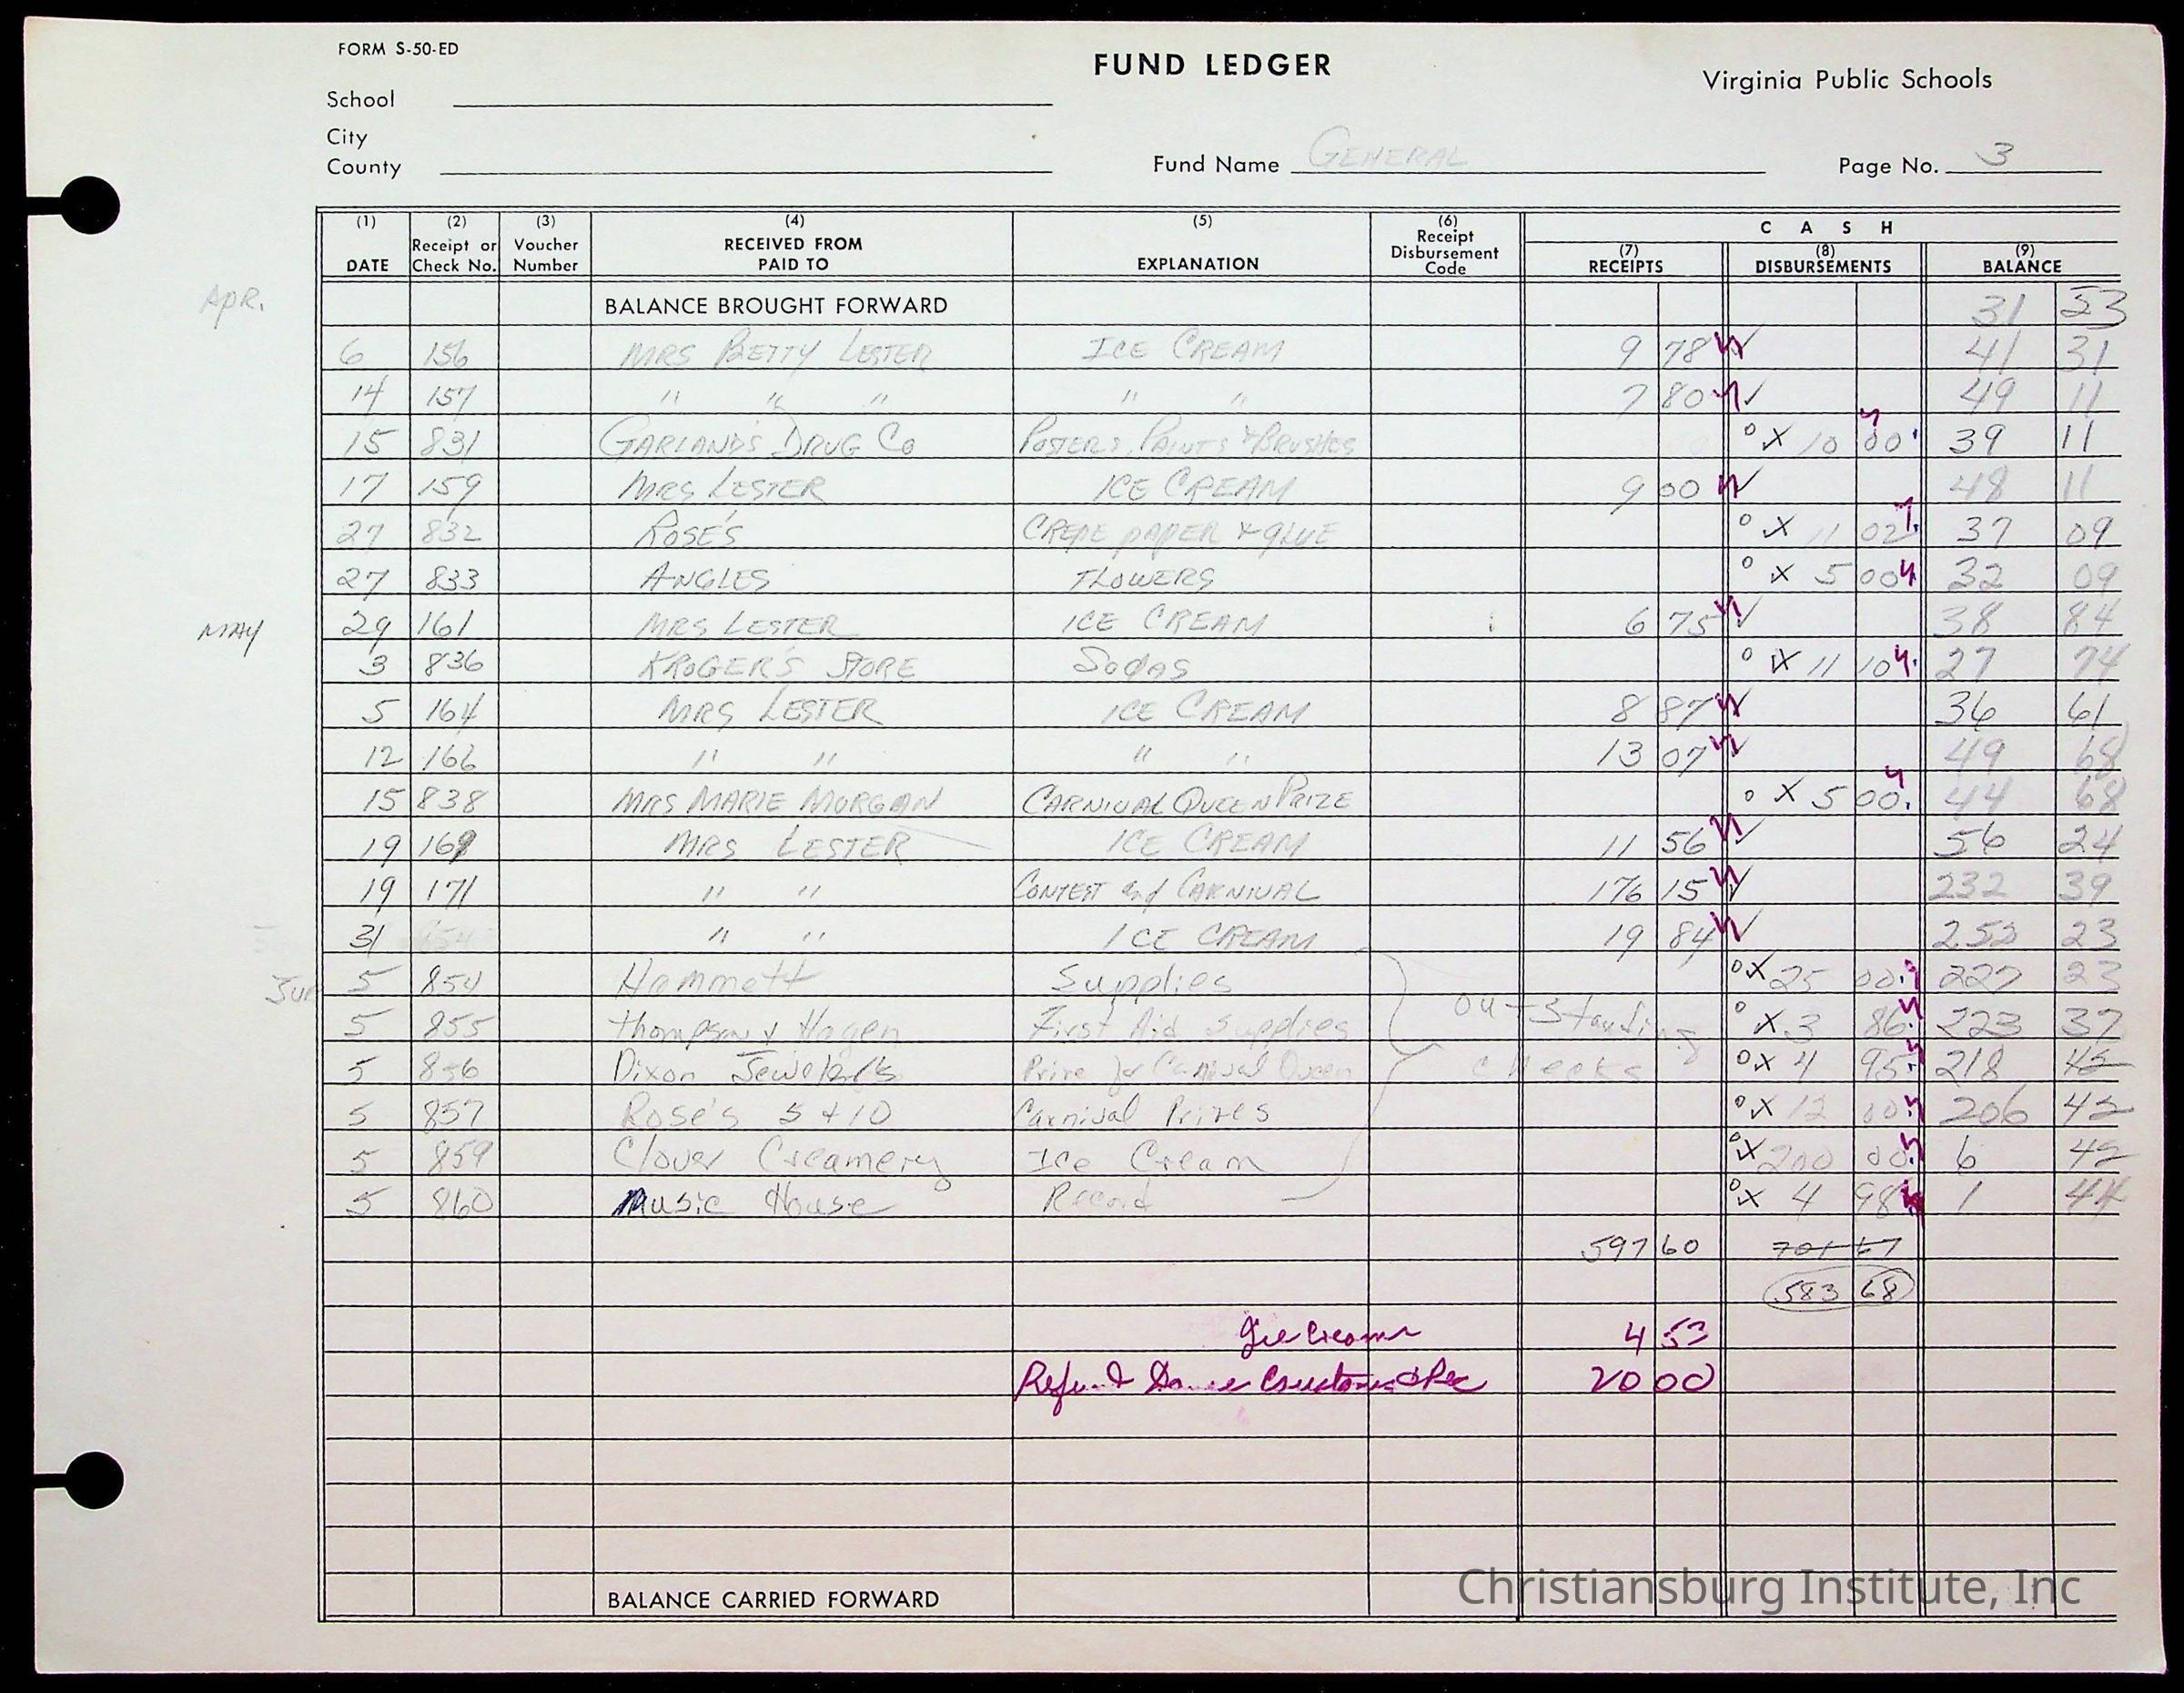 FORM S-50-ED
FUND LEDGER
Virginia Public Schools
School
City
County
Fund Name GENERAL
Page No. 3
(1) (2) (3) (4) (5) (6) C A S H
DATE Receipt or Check No. Voucher Number RECEIVED FROM PAID TO EXPLANATION Receipt Disbursement Code (7) RECEIPTS (8) DISBURSEMENTS (9) BALANCE
APR. BALANCE BROUGHT FORWARD 31 53
6 156 MRS BETTY LESTER ICE CREAM 9 78 ✓ 41 31
14 157 " " " " " 7 80 ✓ 49 11
15 831 GARLAND'S DRUG CO POSTERS, PAINTS & BRUSHES o X 10 00 39 11
17 159 MRS LESTER ICE CREAM 9 00 ✓ 48 11
27 832 ROSE'S CREPE PAPER & GLUE o X 11 02 37 09
27 833 ANGLES FLOWERS o X 5 00 32 09
MAY 29 161 MRS LESTER ICE CREAM 6 75 ✓ 38 84
3 836 KROGER'S STORE SODAS o X 11 10 27 74
5 164 MRS LESTER ICE CREAM 8 87 ✓ 36 61
12 166 " " " " 13 07 ✓ 49 68
15 838 MRS MARIE MORGAN CARNIVAL QUEEN PRIZE o X 5 00 44 68
19 169 MRS LESTER ICE CREAM 11 56 ✓ 56 24
19 171 " " CONTEST and CARNIVAL 176 15 ✓ 232 39
31 " " ICE CREAM 19 84 ✓ 252 23
Jue 5 854 Hammett Supplies o X 25 00 227 23
5 855 Thompson & Hagen First Aid Supplies outstanding o X 3 86 223 37
5 856 Dixon Jewelers Prize for Carnival Queen checks o X 4 95 218 42
5 857 Rose's 5 & 10 Carnival Prizes o X 12 00 206 42
5 859 Clover Creamery Ice Cream o X 200 00 6 42
5 860 Music House Record o X 4 98 1 44
597 60 701 67
583 68
Ice Cream 4 53
Refund 20 00
BALANCE CARRIED FORWARD
Christiansburg Institute, Inc